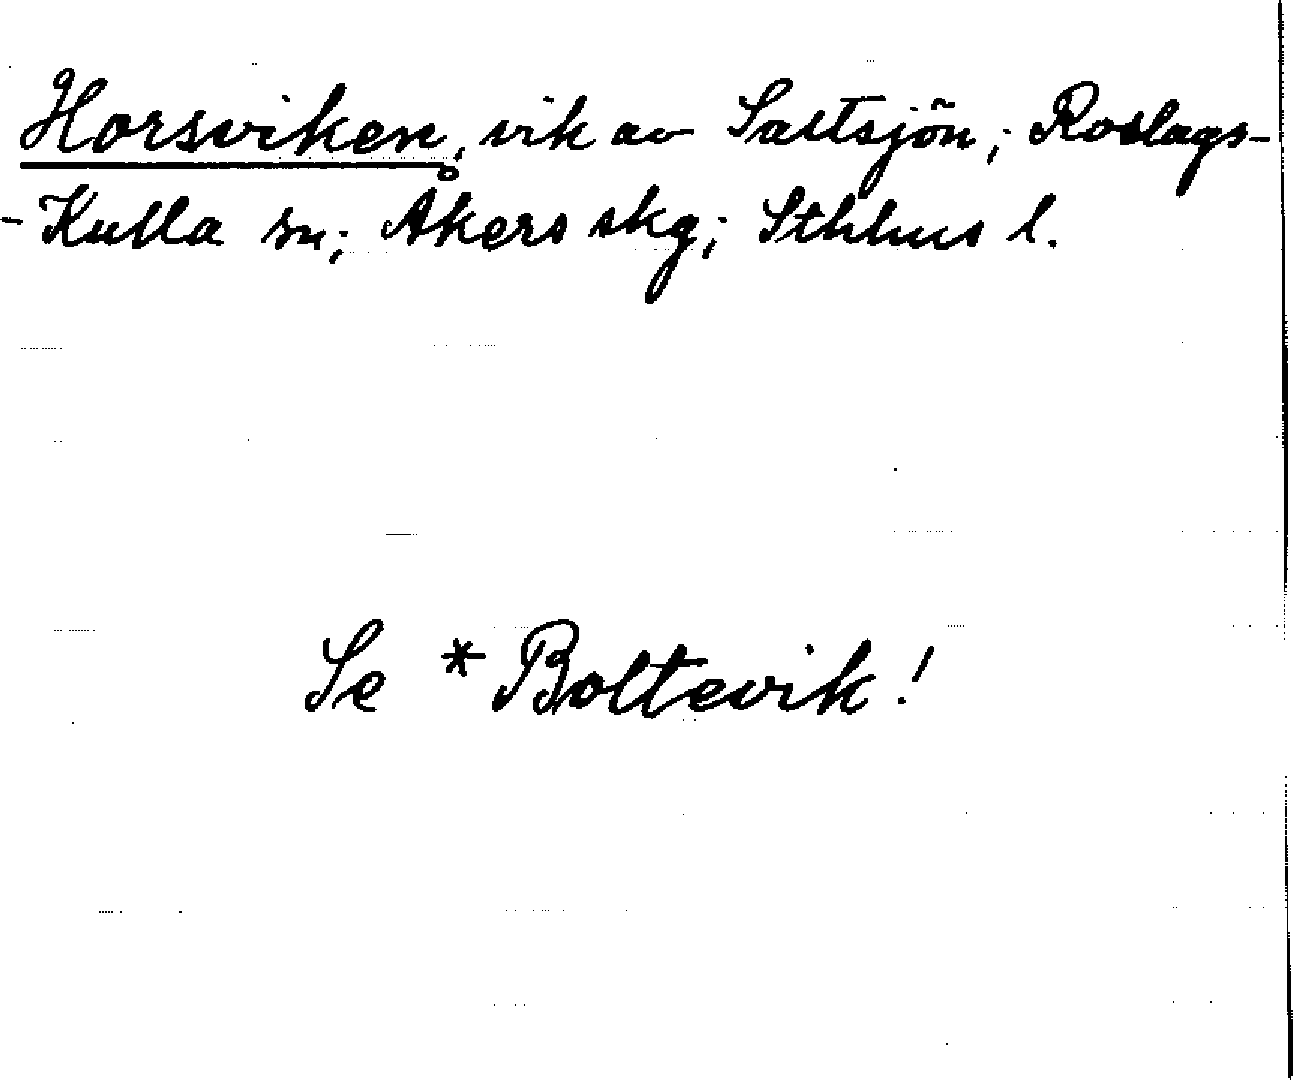 Horsviken, vik av Saltsjön; Roslags-
-Kulla sn; Åkers skg; Sthlms l.
Se *Boltevik!